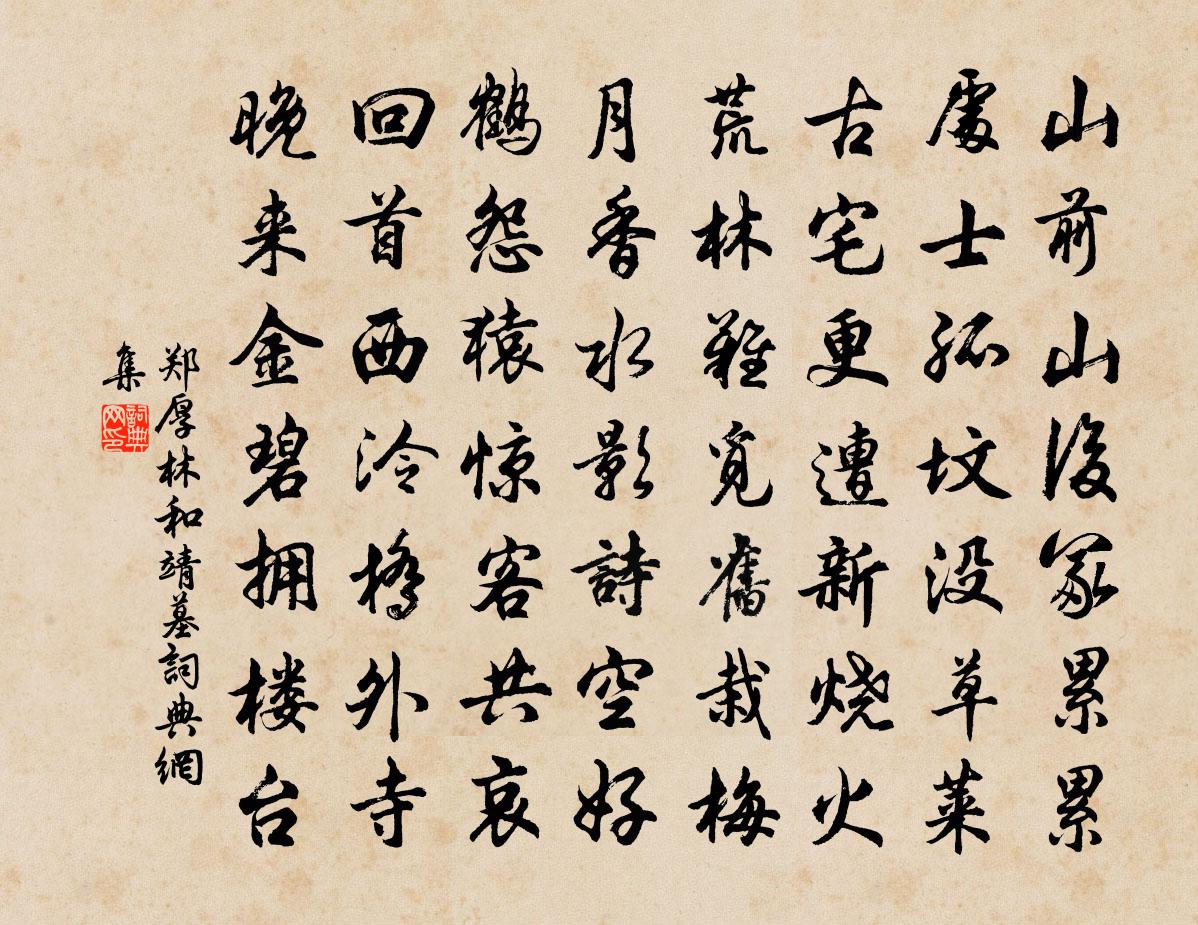 山前山後冢累累
處士孤坟没草莱
古宅更遭新烧火
荒林難覓舊栽梅
月香水影詩空好
鶴怨猿惊客共哀
回首西泠橋外寺
晚来金碧拥楼台
郑厚林和靖墓詞典網
集
詞典网印